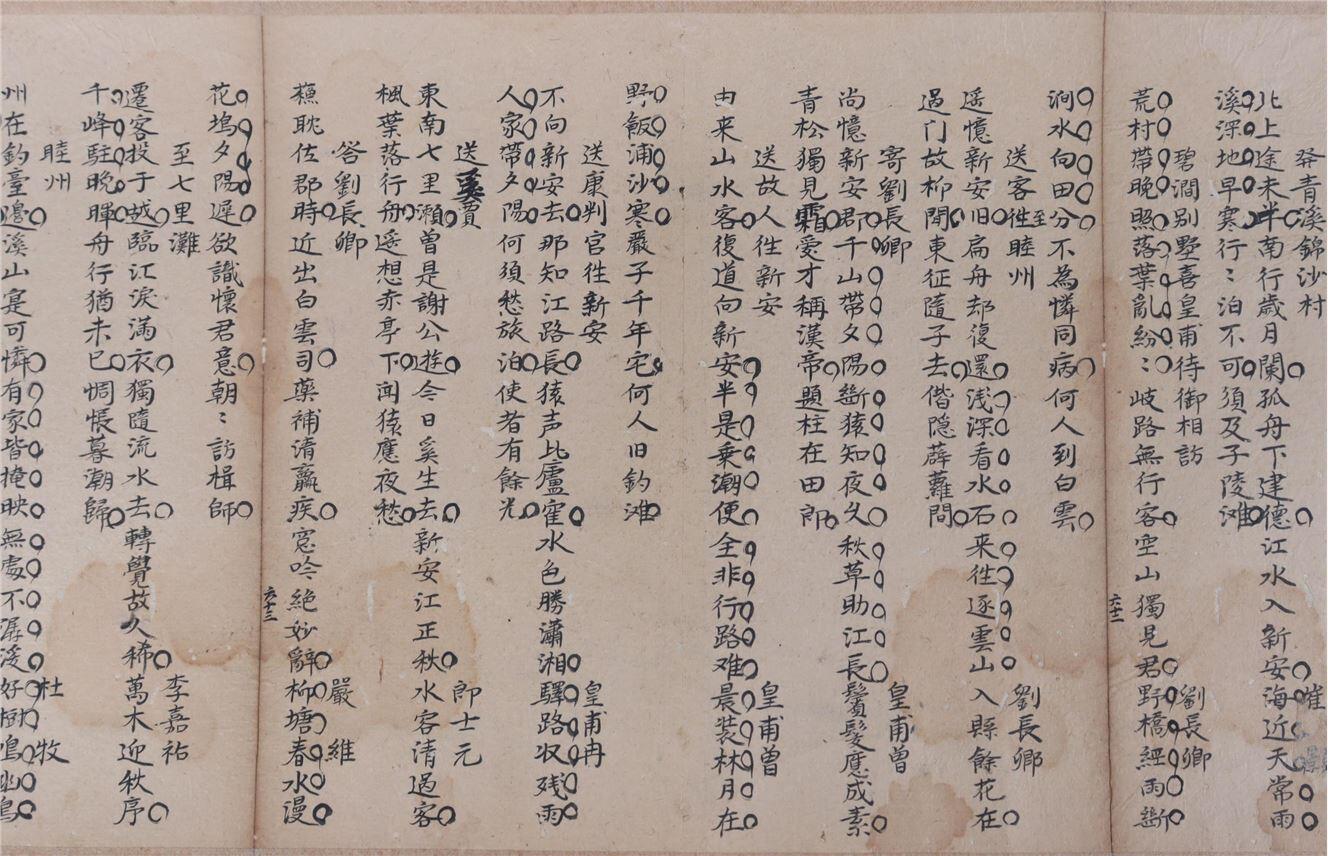 癹青溪錦沙村 崔顥
北上途未半南行歲月闌孤舟下建德江水入新安海近天常雨
溪深地早寒行〻泊不可須及子陵滩
碧澗别墅喜皇甫待御相訪 劉長卿
荒村帶晚照落葉亂紛〻岐路無行客空山獨見君野橋經雨斷
澗水向田分不為憐同病何人到白雲
送客徃至睦州 劉長卿
遥憶新安旧扁舟却復還浅深看水石来徃逐雲山入縣餘花在
過门故柳閒東征隨子去偕隐薜蘿間
寄劉長卿 皇甫曾
尚憶新安郡千山帶夕陽斷猿知夜久秋草助江長鬢髮應成素
青松獨見霜愛才稱漢帝題柱在田郎
送故人徃新安 皇甫曾
由来山水客復道向新安半是乗潮便全非行路难晨装林月在
野飯浦沙寒嚴子千年宅何人旧釣滩
送康判官徃新安 皇甫冉
不向新安去那知江路長猿声比廬霍水色勝瀟湘驛路収残雨
人家帶夕陽何須愁旅泊使者有餘光
送奚賈 郎士元
東南七里瀨曾是謝公遊今日奚生去新安江正秋水客清過客
楓葉落行舟遥想赤亭下闻猿應夜愁
答劉長卿 嚴維
蘓耽佐郡時近出白雲司藥補清羸疾窓吟絶妙辭柳塘春水漫
花塢夕陽遲欲識懷君意朝〻訪楫師
至七里灘 李嘉祐
遷客投于越臨江淚滿衣獨隨流水去轉覺故人稀萬木迎秋序
千峰駐晚暉舟行猶未已惆悵暮潮歸
睦州 杜牧
州在釣臺邊溪山寔可憐有家皆掩映無處不潺湲好樹鳴幽鳥
六十二
六十三